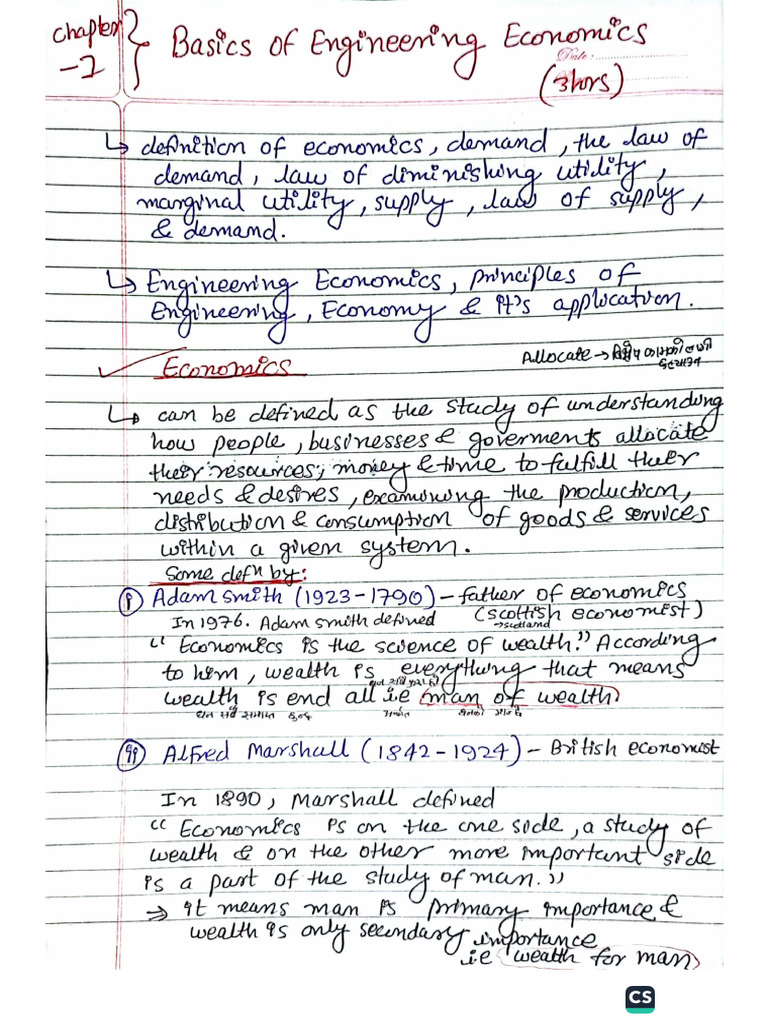 Chapter
-1
Basics of Engineering Economics
Date:
(3hors)
↳ definition of economics, demand, the law of
demand, law of diminishing utility,
marginal utility, supply, law of supply,
& demand.
↳ Engineering Economics, principles of
Engineering, Economy & it's application.
Allocate →
Economics
↳ can be defined as the study of understanding
how people, businesses & goverments allocate
their resources, money & time to fulfill their
needs & desires, examining the production,
distribution & consumption of goods & services
within a given system.
Some defn by:
(i) Adam smith (1923-1790) - father of economics
In 1976. Adam smith defined (scottish economist)
→ scotland
“ Economics is the science of wealth.” According
to him, wealth is everything that means
wealth is end all i.e (man of wealth)
(ii) Alfred Marshall (1842-1924) - British economist
In 1890, Marshall defined
“ Economics is on the one side, a study of
wealth & on the other more important side
is a part of the study of man.”
⇒ it means man is primary importance &
wealth is only secondary importance
i.e (wealth for man)
CS